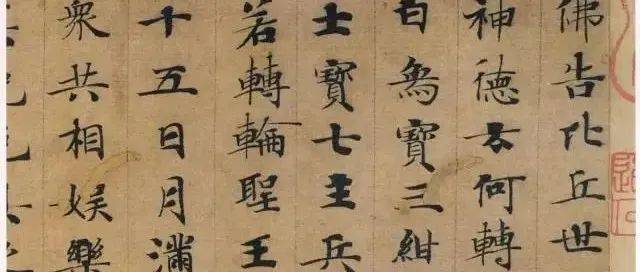 佛告比丘世
神德云何轉
白象寶三紺
士寶七主兵
若轉輪聖王
十五日月滿
衆共相娱樂